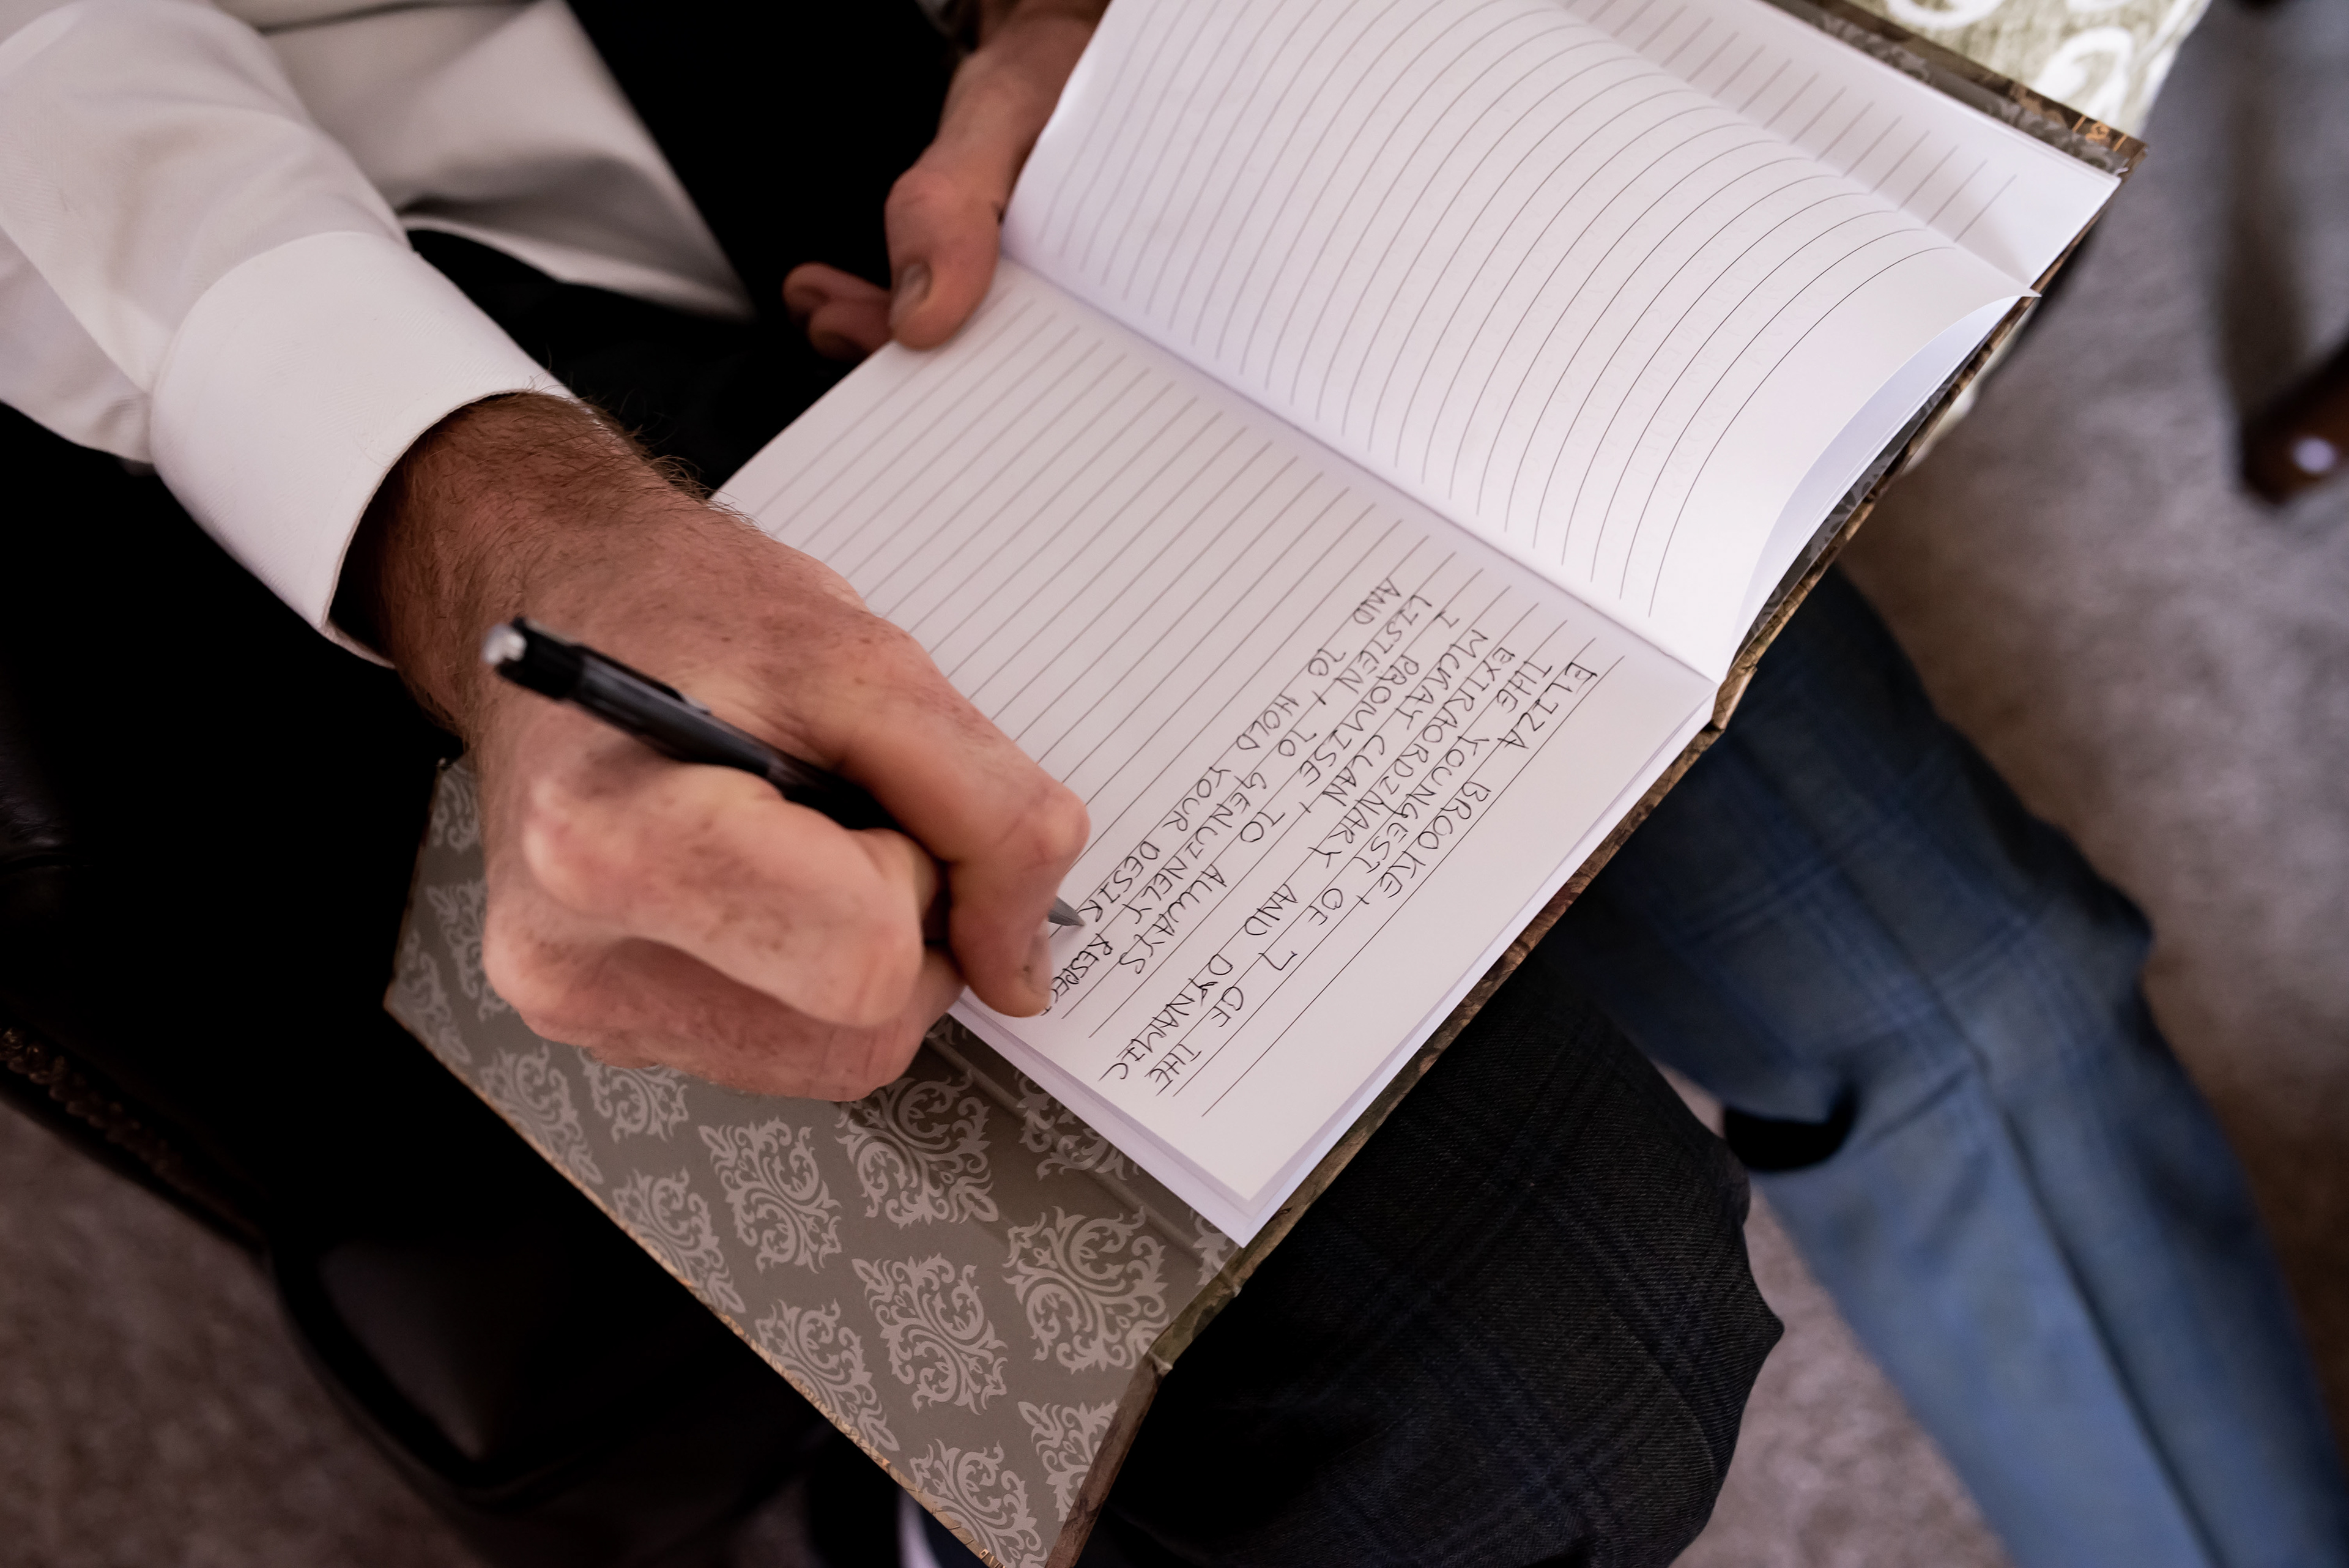 ELIZA BROOKE,
THE YOUNGEST OF 7 OF THE
EXTRAORDINARY AND DYNAMIC
MCKAY CLAN,
I PROMISE TO ALWAYS
LISTEN, TO GENUINELY RESPECT
AND TO HOLD YOUR DESIR